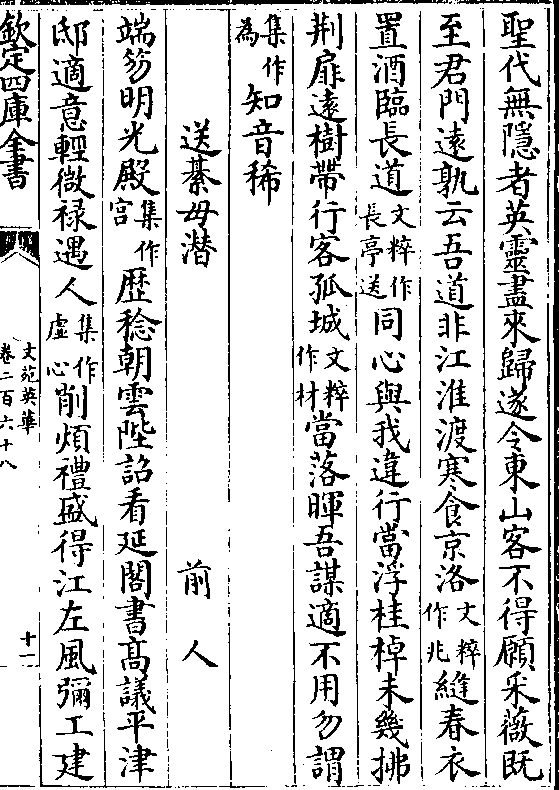 聖代無隱者英靈盡來歸遂令東山客不得顧采薇既
至君門遠孰云吾道非江淮渡寒食京洛文粹作兆縫春衣
置酒臨長道文粹作長亭送同心與我違行當浮桂棹未幾拂
荆扉遠樹帶行客孤城文粹作材當落暉吾謀適不用勿謂
集作為知音稀
送綦毋潛 前人
端笏明光殿集作宮歷稔朝雲陛詔看延閣書髙議平津
邸適意輕微祿遇人集作虛心削煩禮盛得江左風彌工建
欽定四庫全書
文苑英華
卷二百六十八
十一